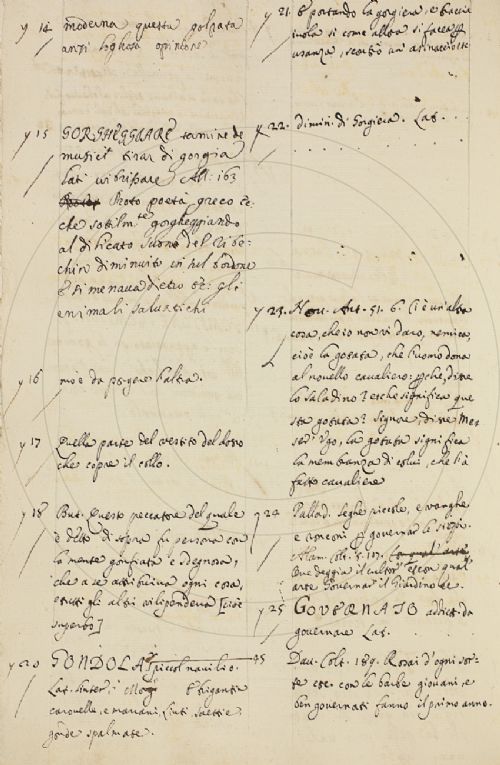 y 14 moderna questa golpata
anzi sognosa opinione
y 15 GORGHEGGIARE termine de
musici tirar di gorgia
lat: vibrissare All: 163
Proto poeta greco &c:
che sottilmte gorgheggiando
al dilicato suono del ribe:
chin diminuito in sul bordone
si menava dietro &c: gli
animali salvatichi
y 16 mo è da porgere halta.
y 17 Quella parte del vestito del dosso
che copre il collo.
y 18 But. Questo peccatore del quale
è detto di sopra fu persona con
la mente gonfiata e sdegnosa,
che a se attribuiva ogni cosa,
e tutti gli altri vilipendeva [cioè
superbo]
y 20 GONDOLA piccol navilio.
Lat.
caravelle, e marani, liuti saettie
gonde spalmate.
y 21. E portando la gorgiera, e
si come allora si facea
usanza,
y 22. dimin: di Gorgiera. Lat. . . .
y 23. Nov. Ant. 51. 6. Ci è un'altra
cosa, che io non vi daro, nemica,
cioè la gotata, che l'uomo dona
al novello cavaliero: pche, disse
lo Saladino? et che significa que
sta gotata? Signore, disse Mes
ser Ugo, la gotata significa
la membranza di colui, che l'à
fatto cavaliere
y 24 Pallad. seghe piccole, e vanghe
e ronconi p governar le siepi.
Alam. Colt. 5. 107. la qual arte
Que deggia il cultor et con qual
arte Governar il Giardino
y 25 GOVERNATO addiett. da
governare Lat.
45 Dav. Colt. 189. Rosai d'ogni sor:
te ete. con le barbe giovani, e
ben governati fanno il primo anno.